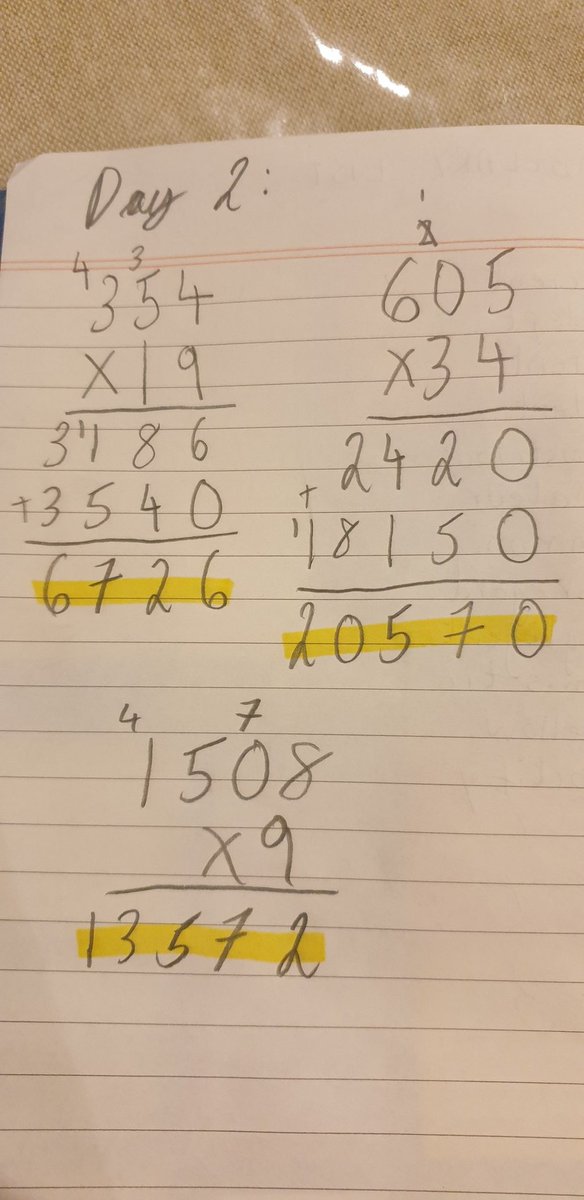 Day 2:
4 3
354
×19
3186
+3540
6726
1
2
605
×34
2420
+
18150
20570
4 7
1508
×9
13572